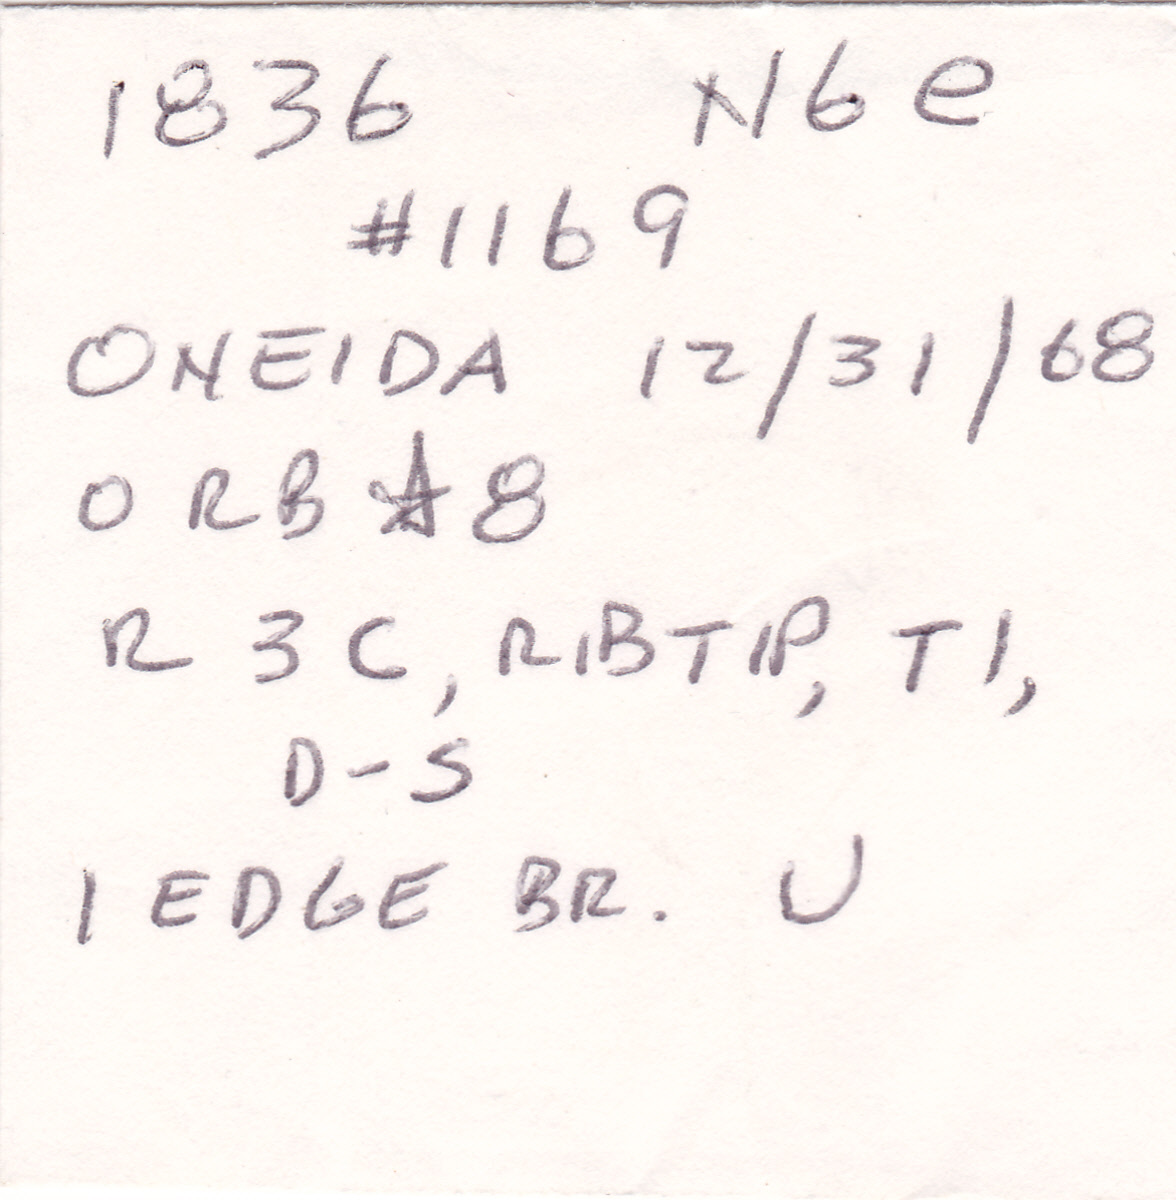 1836 N6e
#1169
ONEIDA 12/31/68
ORB #8
R 3C, RIBTIP, T1,
D-S
1 EDGE BR. U